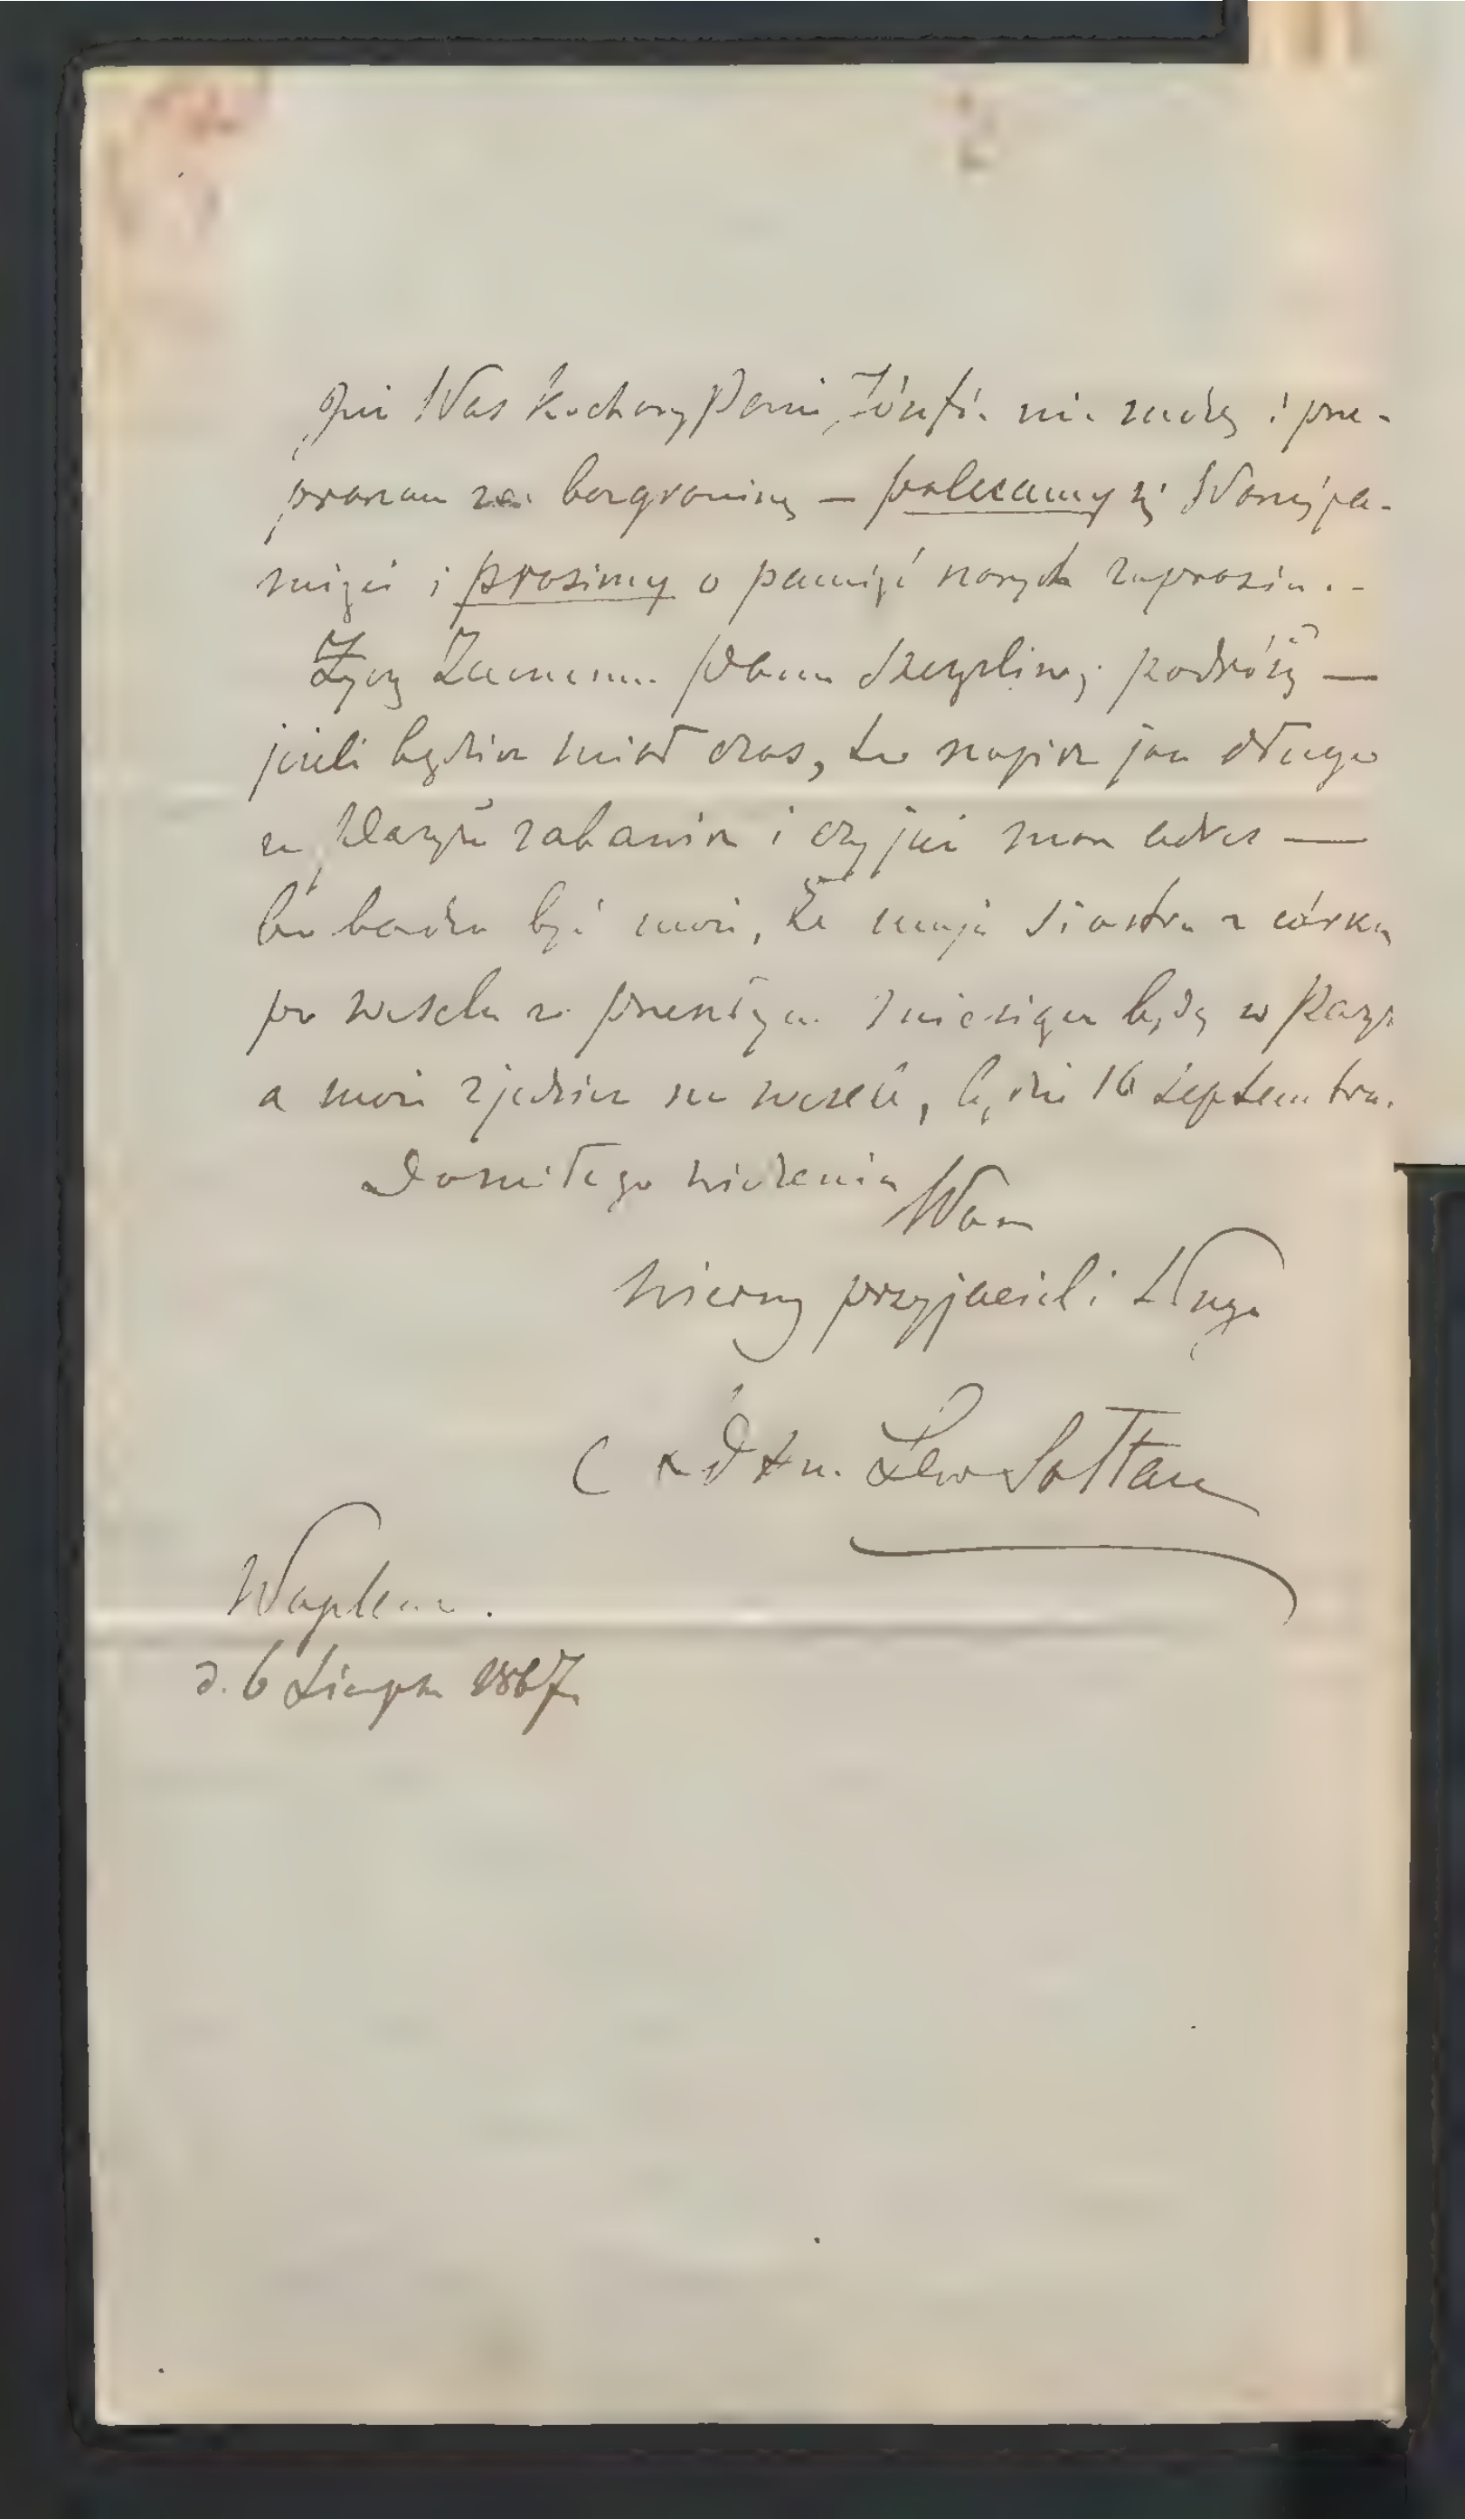 Już Was kochany Panie Józefie nie nudzę i prze-
praszam za bazgraninę — polecamy się Waszej pa-
mięci i prosimy o pamięć naszych zaprosin. -
Życzę Zacnemu Panu szczęśliwej podróży —
jeżeli będziesz miał czas, to napisz jak długo
w Paryżu zabawisz i czy już masz adres —
bo bardzo być może, że moja siostra z córką
po weselu w przeszłym miesiącu będą w Paryżu
a może zjedziesz na wesele, będzie 16 Septembra.
Do miłego widzenia Wasz
wierny przyjaciel i sługa
Lew Sołtan
Waplewo.
d. 6 Sierpn 1867